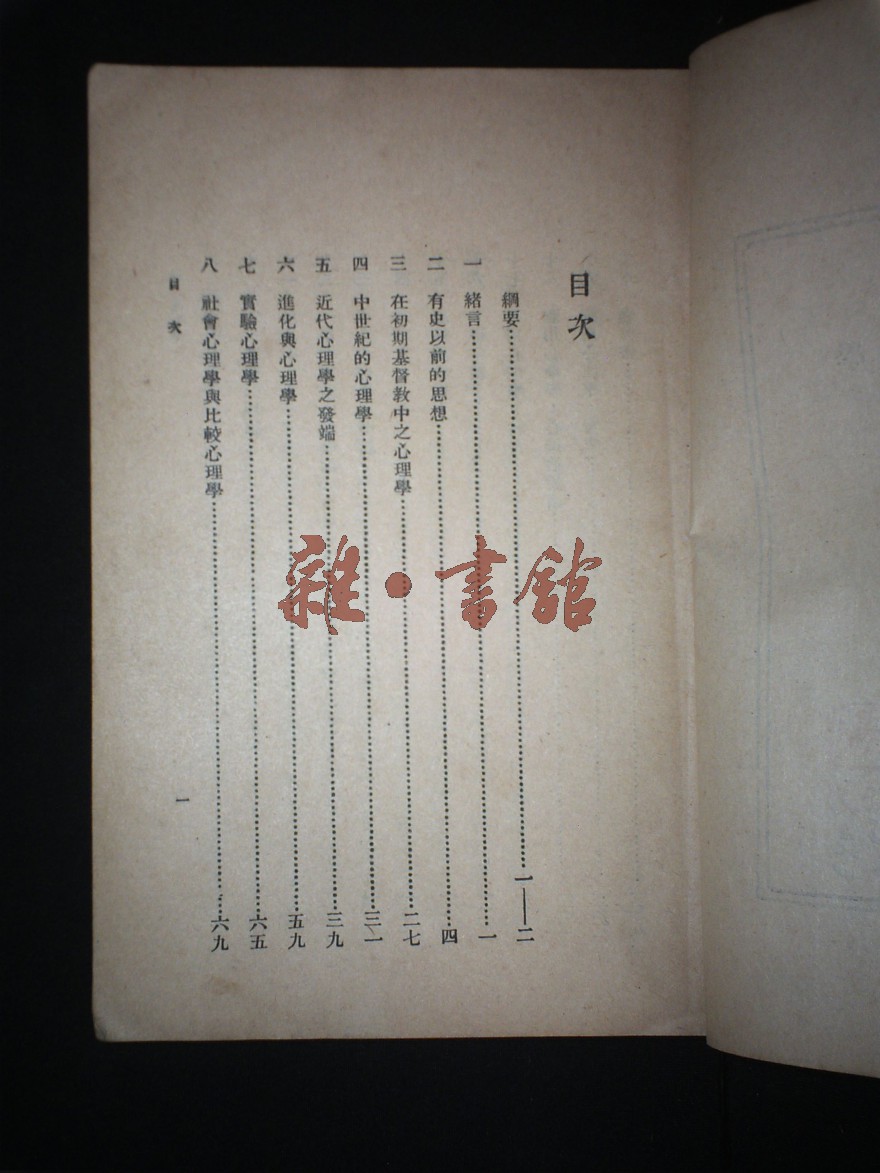 目次
綱要……一——二
一 緒言……一
二 有史以前的思想……四
三 在初期基督教中之心理學……二七
四 中世紀的心理學……三一
五 近代心理學之發端……三九
六 進化與心理學……五九
七 實驗心理學……六五
八 社會心理學與比較心理學……六九
目次 一
雜·書館